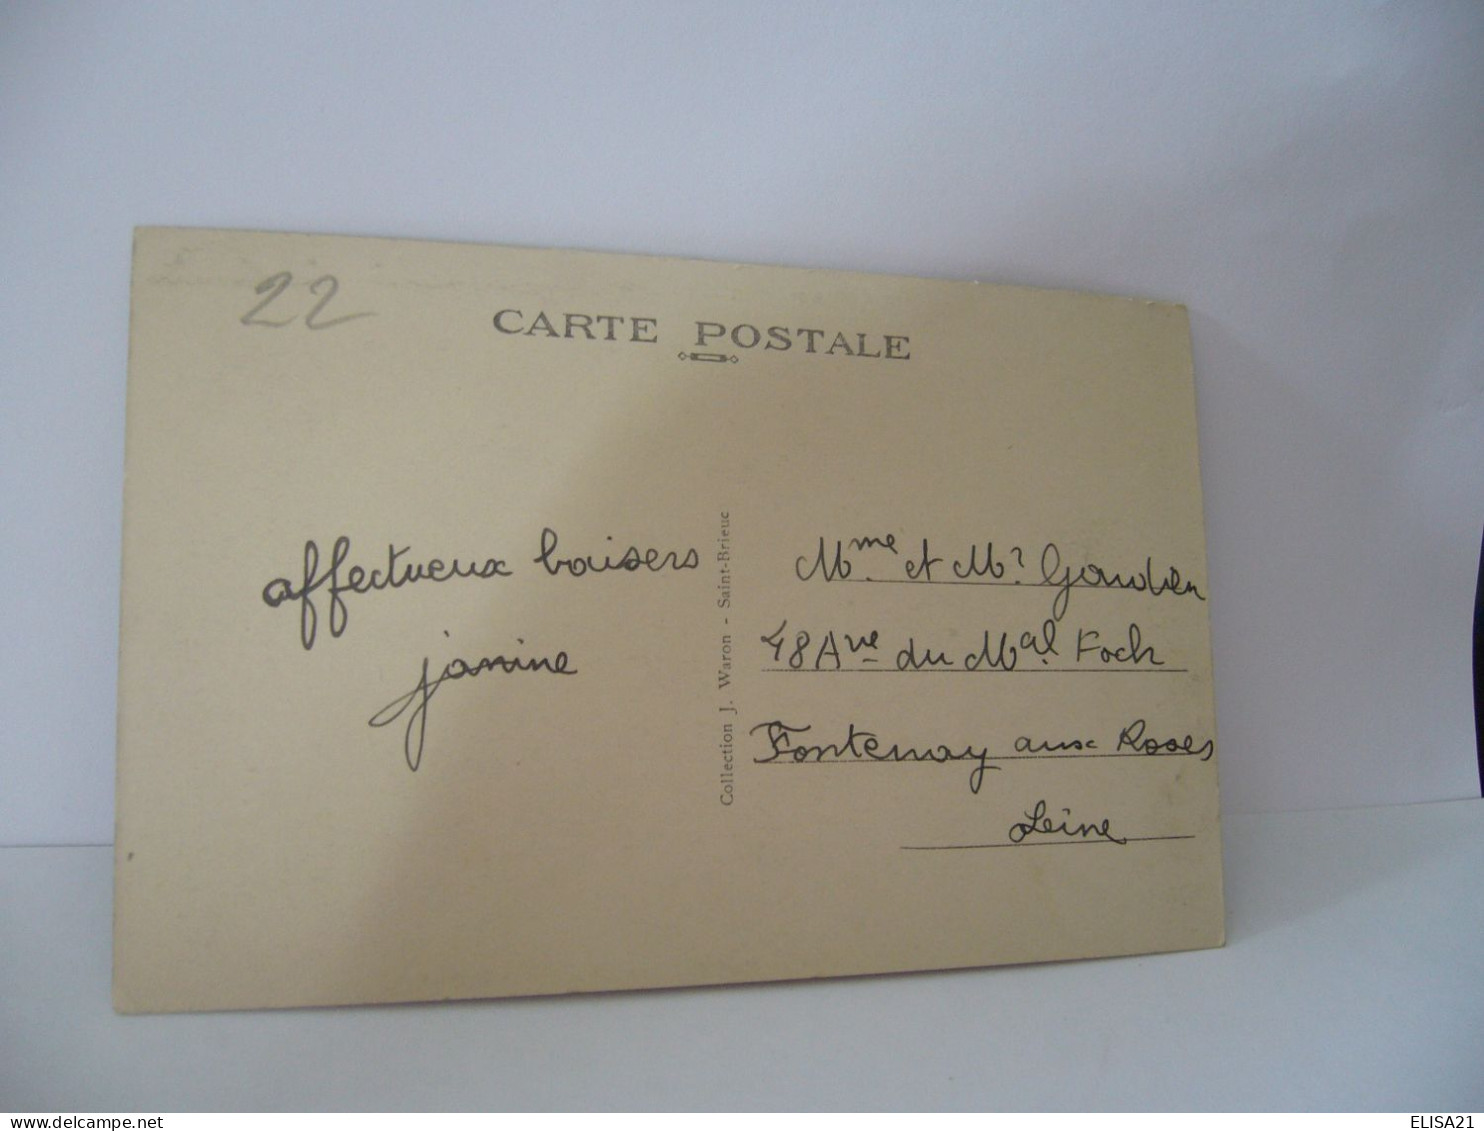 22
CARTE POSTALE
affectueux baisers
janine
Collection J. Waron - Saint-Brieuc
Mme et Mr
48 Ave du Mal Foch
Fontenay aux Roses
Seine
ELISA21